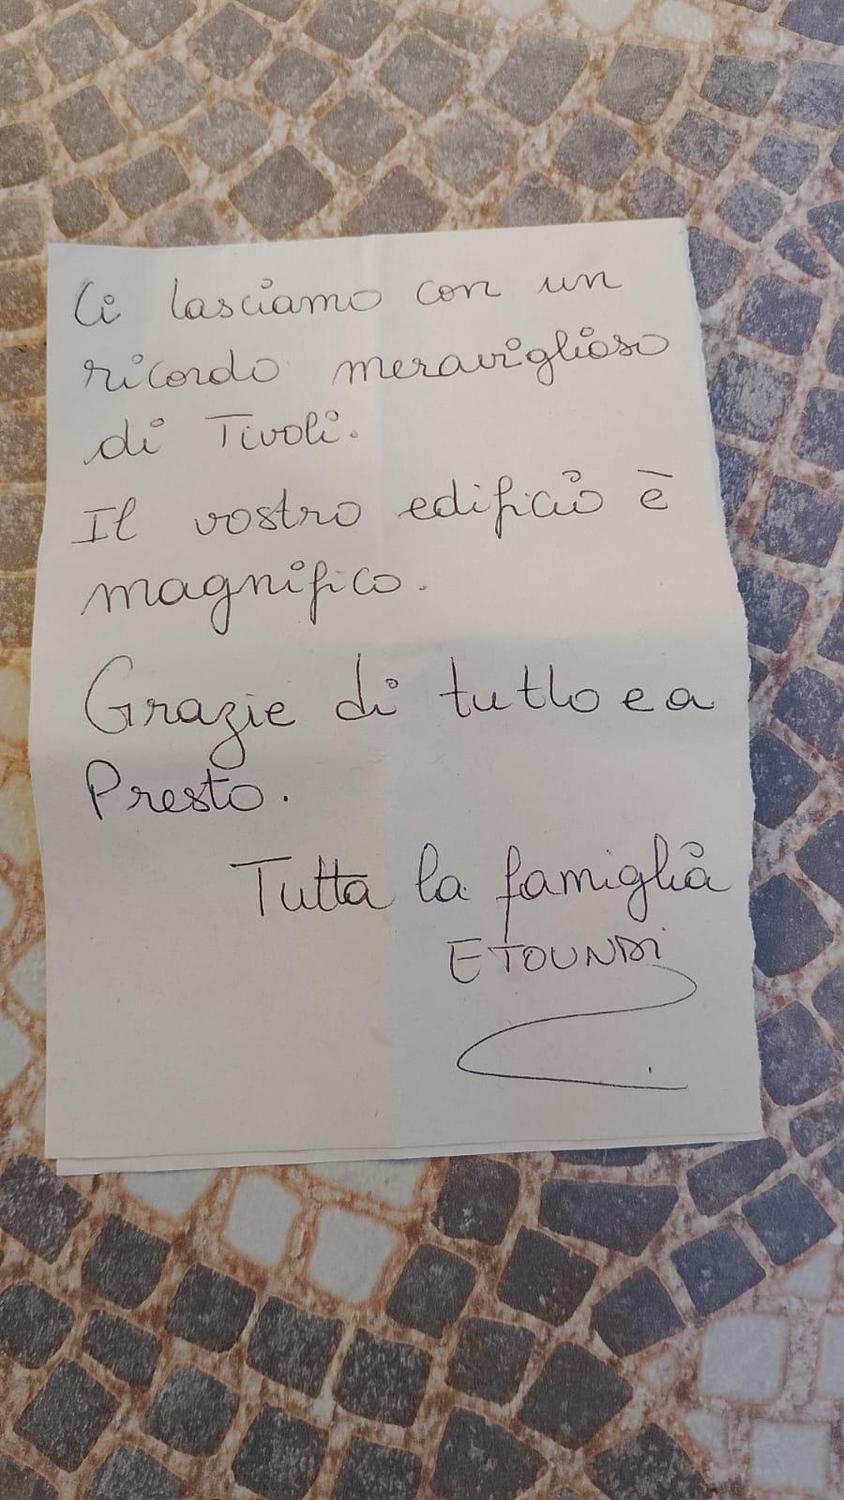 Ci lasciamo con un
ricordo meraviglioso
di Tivoli.
Il vostro edificio è
magnifico.
Grazie di tutto e a
Presto.
Tutta la famiglia
ETOUNDI